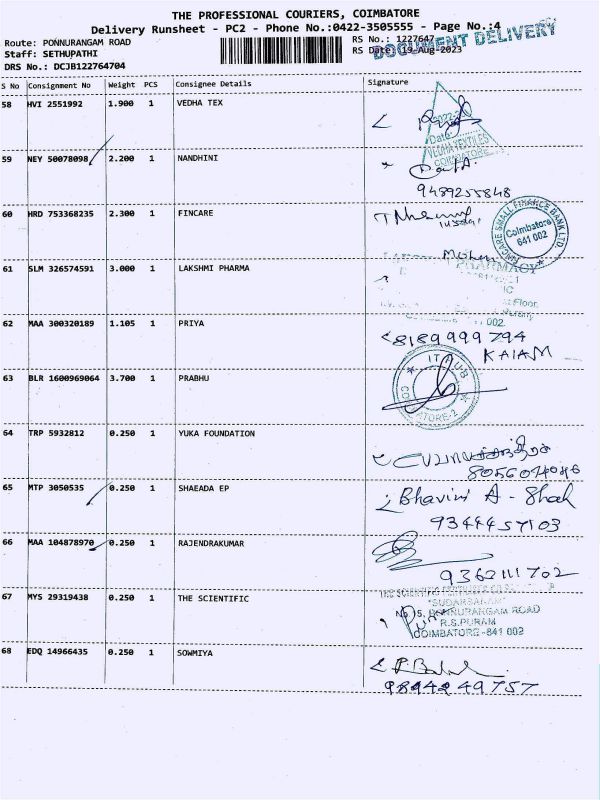 THE PROFESSIONAL COURIERS, COIMBATORE
Delivery Runsheet - PC2 - Phone No.:0422-3505555 - Page No.:4
Route: PONNURANGAM ROAD
RS No.: 1227647
DOCUMENT DELIVERY
Staff: SETHUPATHI
RS Date: 19-Aug-2023
DRS No.: DCJB122764704
S No Consignment No Weight PCS Consignee Details Signature
58 HVI 2551992 1.900 1 VEDHA TEX
Date
VEDHA TEXTILES
COIMBATORE
59 NEY 50078098 2.200 1 NANDHINI
9489255848
60 HRD 753368235 2.300 1 FINCARE
FINCARE SMALL FINANCE BANK LTD
Coimbatore
641 002
61 SLM 326574591 3.000 1 LAKSHMI PHARMA
Mohan
PHARMACY
Floor,
002
62 MAA 300320189 1.105 1 PRIYA
8189999794
KALAM
63 BLR 1600969064 3.700 1 PRABHU
64 TRP 5932812 0.250 1 YUKA FOUNDATION
65 MTP 3050535 0.250 1 SHAEADA EP
Bhavini A - Shah
9344457103
66 MAA 104878970 0.250 1 RAJENDRAKUMAR
9363111702
67 MYS 29319438 0.250 1 THE SCIENTIFIC
THE SCIENTIFIC
"SUDARSANAM"
No. 15, PONNURANGAM ROAD
R.S.PURAM
COIMBATORE-641 002
68 EDQ 14966435 0.250 1 SOWMIYA
9894249757